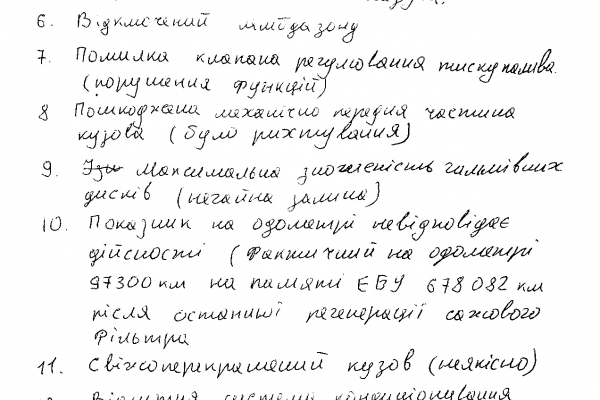 6. Відключений
7. Помилка клапана регулювання тиску палива.
(порушення функцій)
8 Пошкоджена механічно передня частина
кузова (було рихтування)
9. Максимальна зношеність гальмівних
дисків (негайна заміна)
10. Показник на одометрі невідповідає
дійсності (Фактичний на одометрі
97300 км на памяті ЕБУ 678082 км
після останньої регенерації сажового
Фільтра
11. Свіжоперекрашений кузов (неякісно)
системи кондиціонування